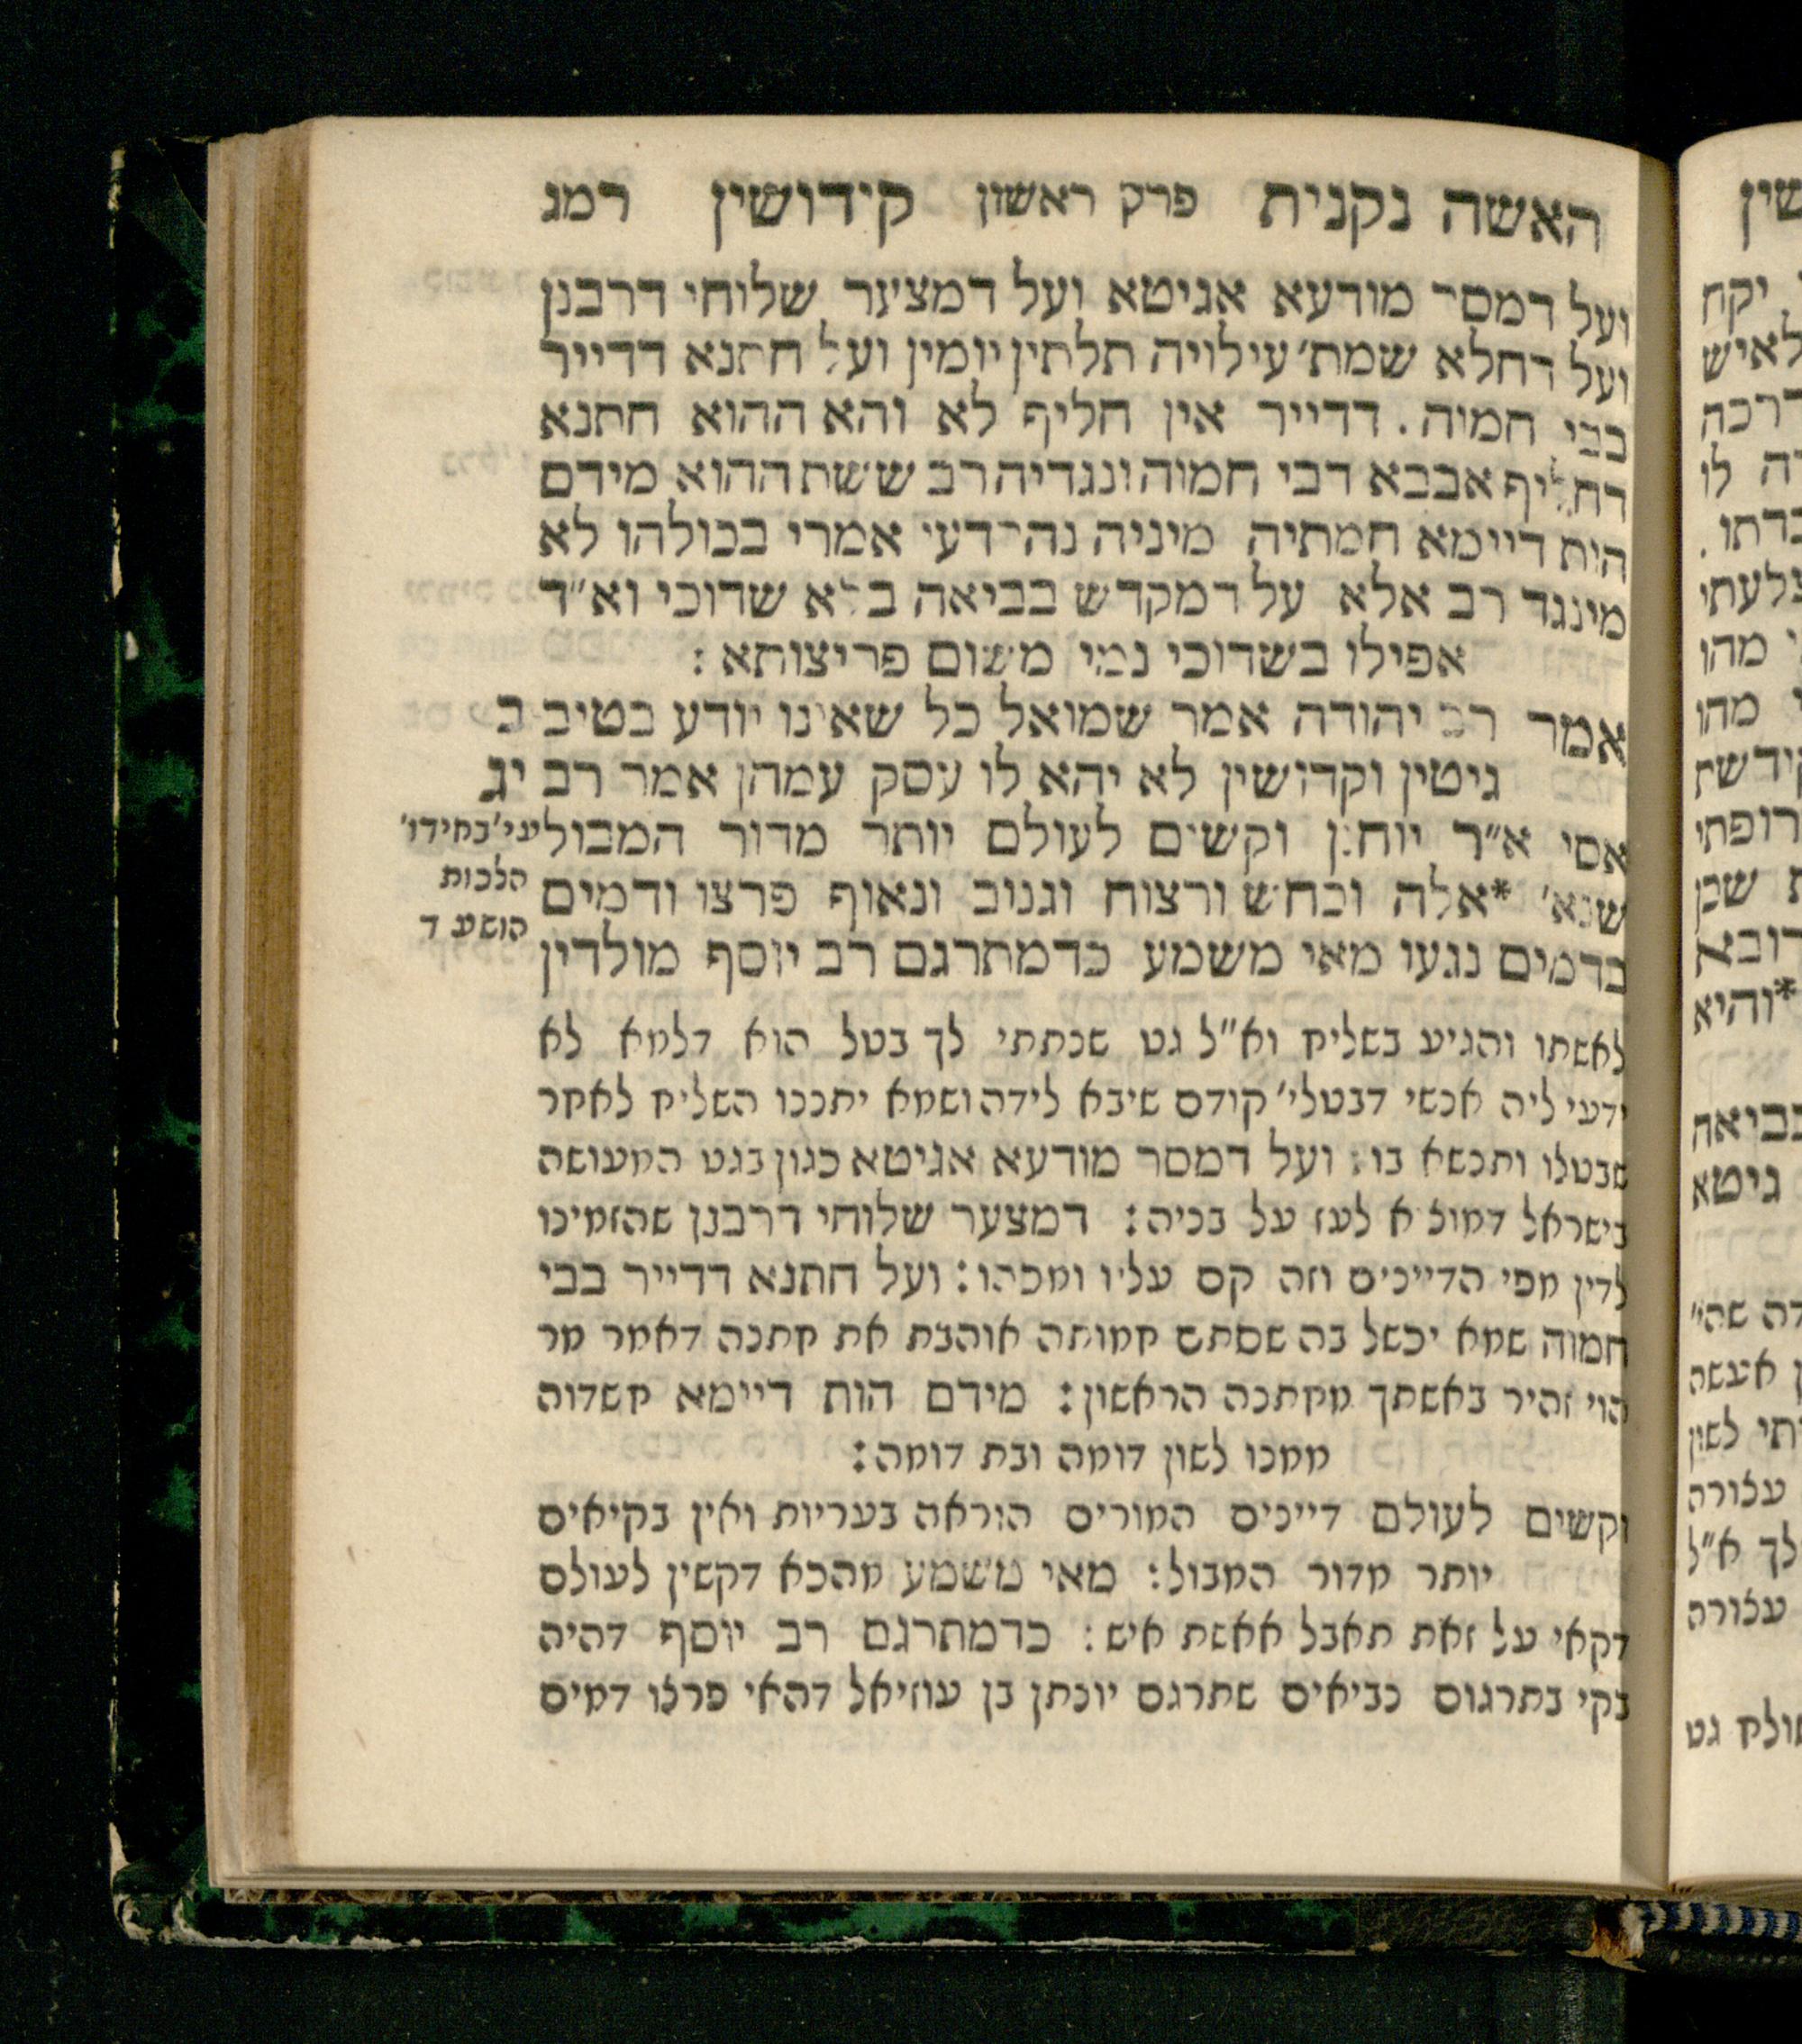 האשה נקנית פרק ראשון קידושין רמג
ועל דמסר מודעא אגיטא ועל דמצער שלוחי דרבנן
ועל דחלא שמת׳ עילויה תלתין יומין ועל חתנא דדייר
בבי חמוה. דדייר אין חליף לא והא ההוא חתנא
דחליף אבבא דבי חמוה ונגדיה רב ששת ההוא מידם
הות דיימא חמתיה מיניה נהרדעי אמרי בכולהו לא
מינגד רב אלא על דמקדש בביאה בלא שדוכי וא״ד
אפילו בשדוכי נמי משום פריצותא :
אמר רב יהודה אמר שמואל כל שאינו יודע בטיב ב
גיטין וקדושין לא יהא לו עסק עמהן אמר רב יג
אסי א״ר יוחנן וקשים לעולם יותר מדור המבול
עי׳ בחידו׳
הלכות
הושע ד
שנא׳ *אלה וכחש ורצוח וגנוב ונאוף פרצו ודמים
בדמים נגעו מאי משמע כדמתרגם רב יוסף מולדין
לאשתו והגיע בשליח וא״ל גט שנתתי לך בטל הוא דלמא לא
ידעי ליה אנשי דבטלי׳ קודם שיבא לידה ושמא יתננו השליח לאחר
שבטלו ותנשא בו: ועל דמסר מודעא אגיטא כגון בגט המעושה
בישראל דמוציא לעז על בניה: דמצער שלוחי דרבנן שהזמינו
לדין מפי הדיינים וזה קם עליו ומכהו: ועל חתנא דדייר בבי
חמוה שמא יכשל בה שסתם חמותה אוהבת את חתנה דאמר מר
הוי זהיר באשתך מחתנה הראשון: מידם הות דיימא חשדוה
ממנו לשון דומה ובת דומה:
וקשים לעולם דיינים המורים הוראה בעריות ואין בקיאים
יותר מדור המבול: מאי משמע מהכא דקשין לעולם
דקאי על זאת תאבל אאשת איש: כדמתרגם רב יוסף דהיה
בקי בתרגום נביאים שתרגם יונתן בן עוזיאל דהאי פרצו דמים